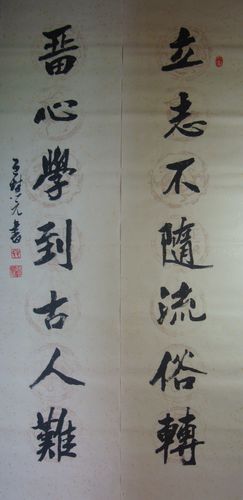 立志不隨流俗轉
畱心學到古人難